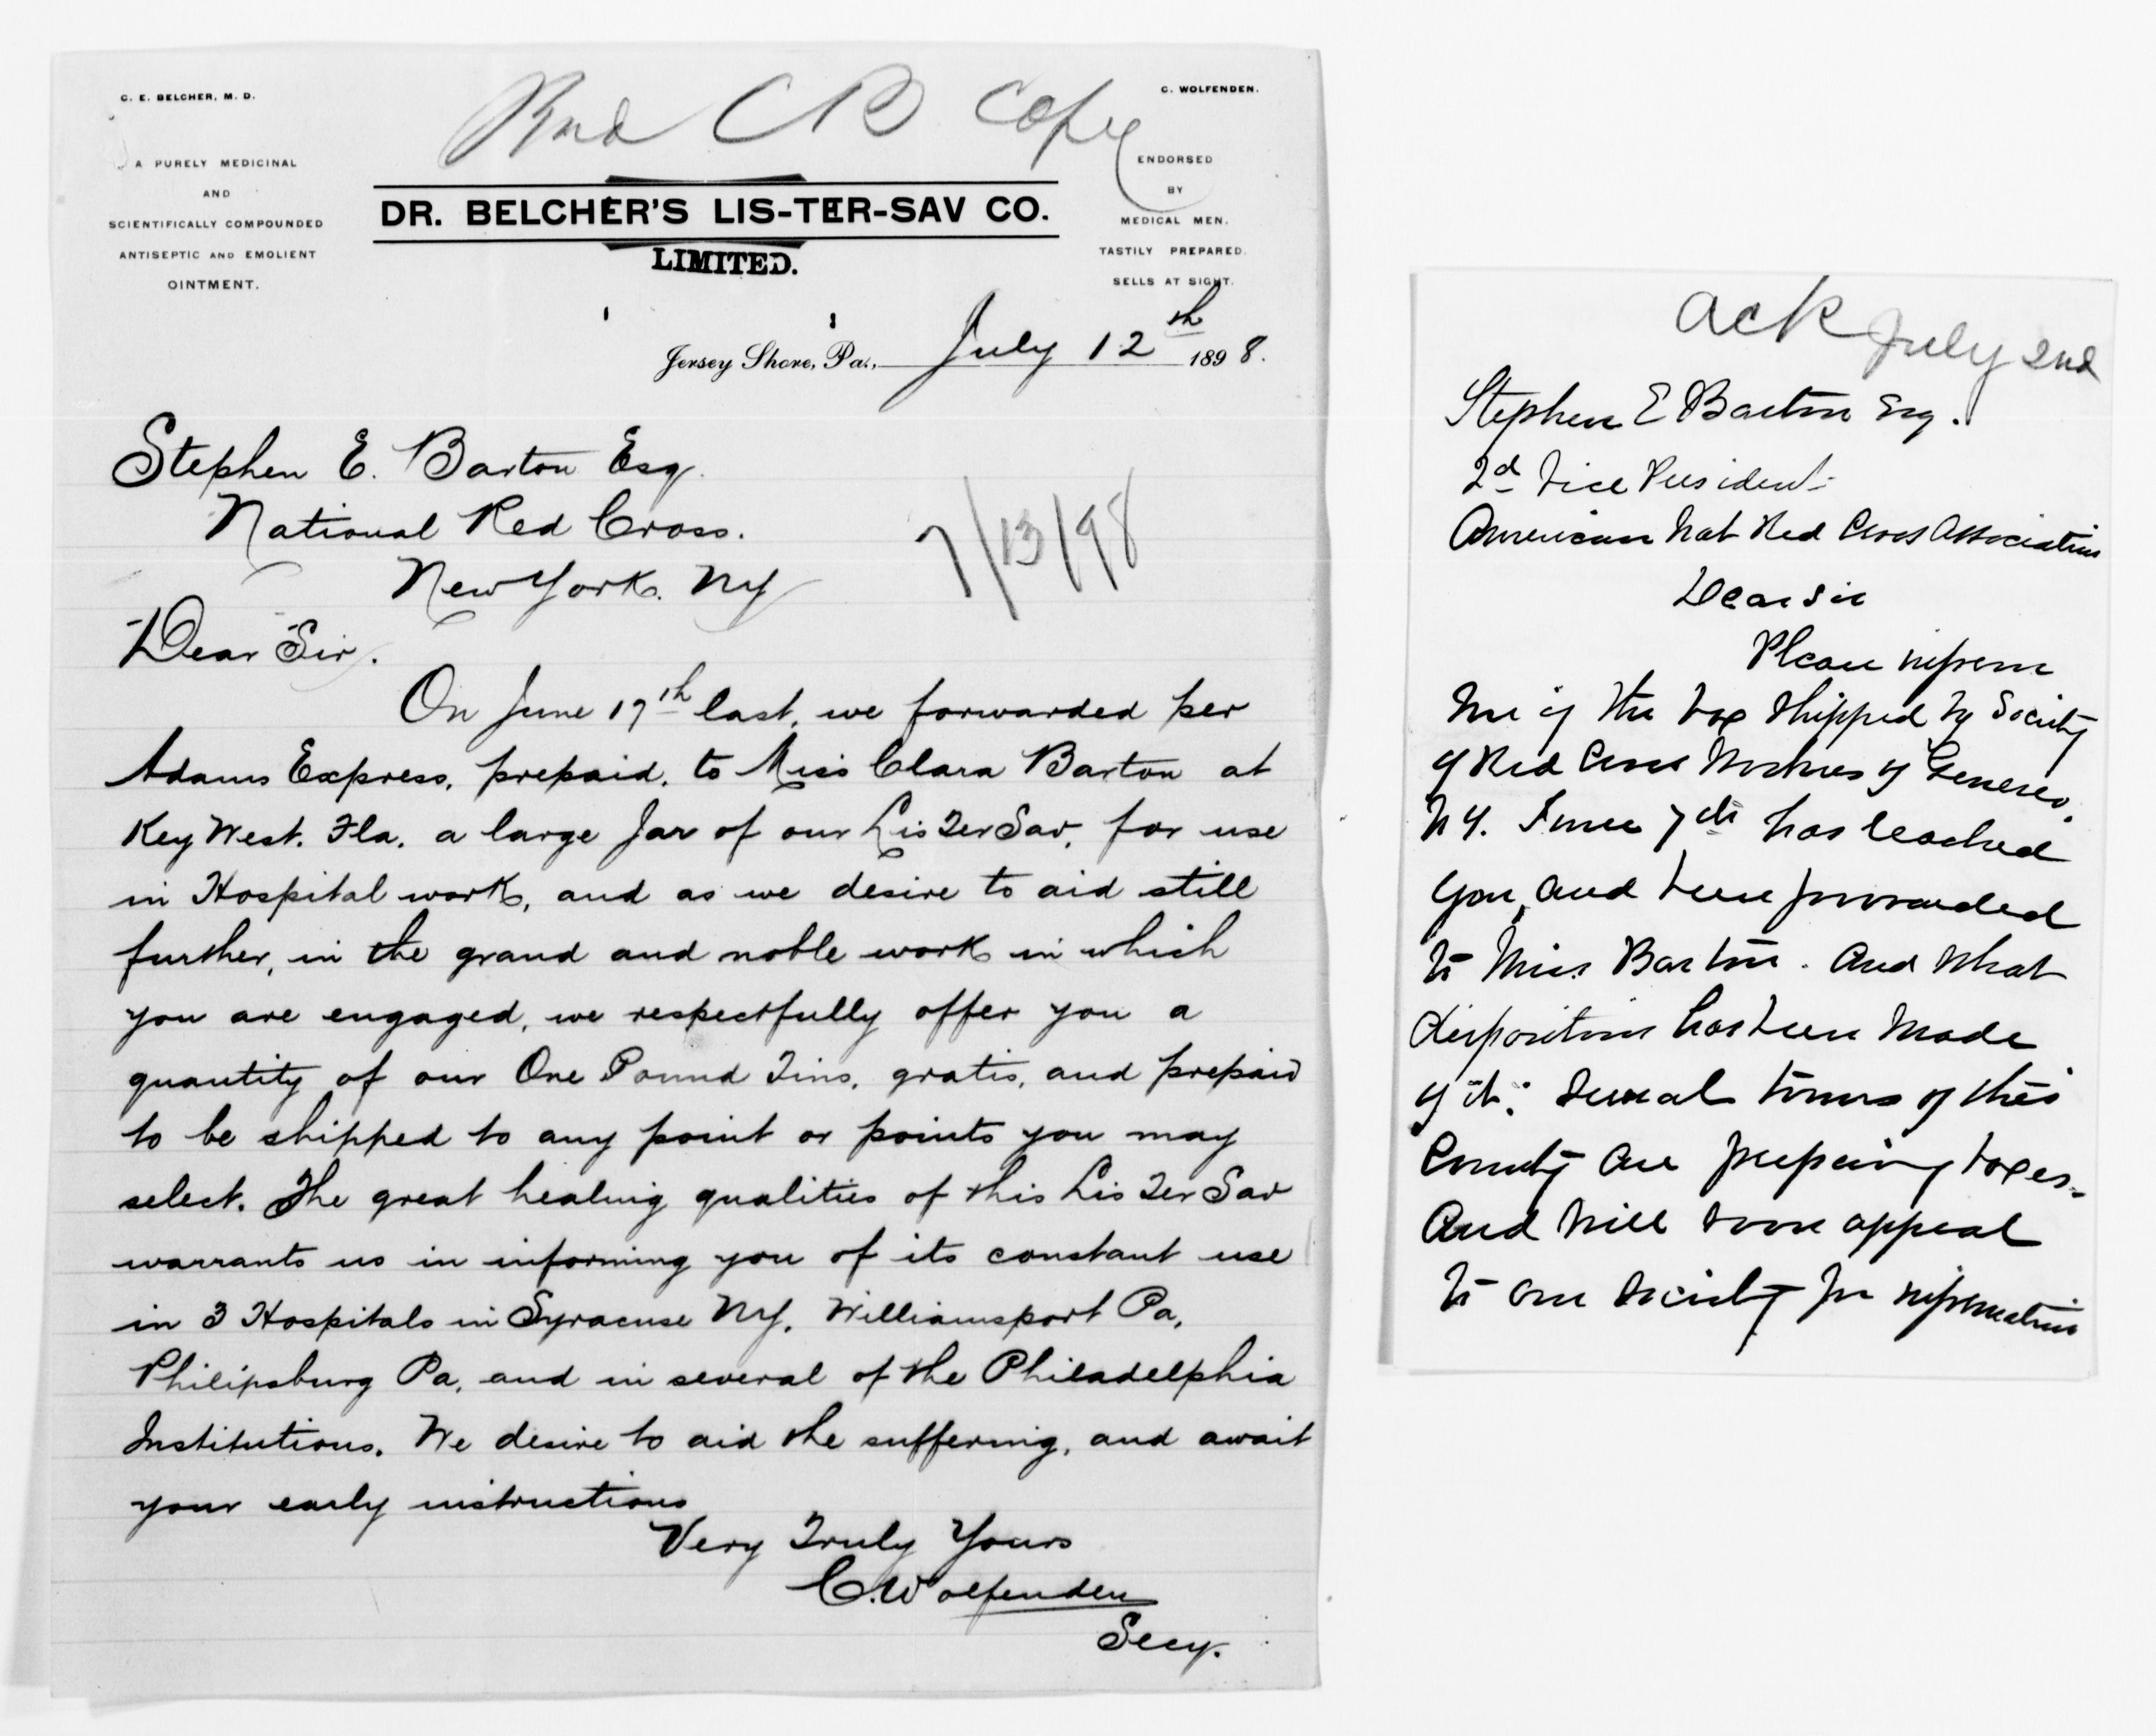 C. E. BELCHER, M. D.
C. WOLFENDEN.
CB Copy
A PURELY MEDICINAL
AND
SCIENTIFICALLY COMPOUNDED
ANTISEPTIC AND EMOLIENT
OINTMENT.
ENDORSED
BY
MEDICAL MEN.
TASTILY PREPARED.
SELLS AT SIGHT.
DR. BELCHER'S LIS-TER-SAV CO.
LIMITED.
Jersey Shore, Pa., July 12th 1898.
Stephen E. Barton Esq.
National Red Cross.
New York. NY
7/13/98
Dear Sir.
On June 17th last, we forwarded per
Adams Express, prepaid, to Miss Clara Barton at
Key West. Fla. a large Jar of our LisTerSav, for use
in Hospital work, and as we desire to aid still
further, in the grand and noble work in which
you are engaged, we respectfully offer you a
quantity of our One Pound Tins, gratis, and prepaid
to be shipped to any point or points you may
select. The great healing qualities of this LisTerSav
warrants us in informing you of its constant use
in 3 Hospitals in Syracuse NY, Williamsport Pa,
Philipsburg Pa, and in several of the Philadelphia
Institutions. We desire to aid the suffering, and await
your early instructions
Very Truly Yours
C. Wolfenden
Secy.
ack July 2nd
Stephen E Barton Esq.
2d Vice President
American Nat Red Cross Association
Dear Sir
Please inform
me if the box shipped by Society
of Red Cross Workers of Geneseo,
N Y. June 7th has reached
you, and been forwarded
to Miss Barton. And what
disposition has been made
of it. Several towns of this
County are preparing boxes-
And will soon appeal
to our society for information